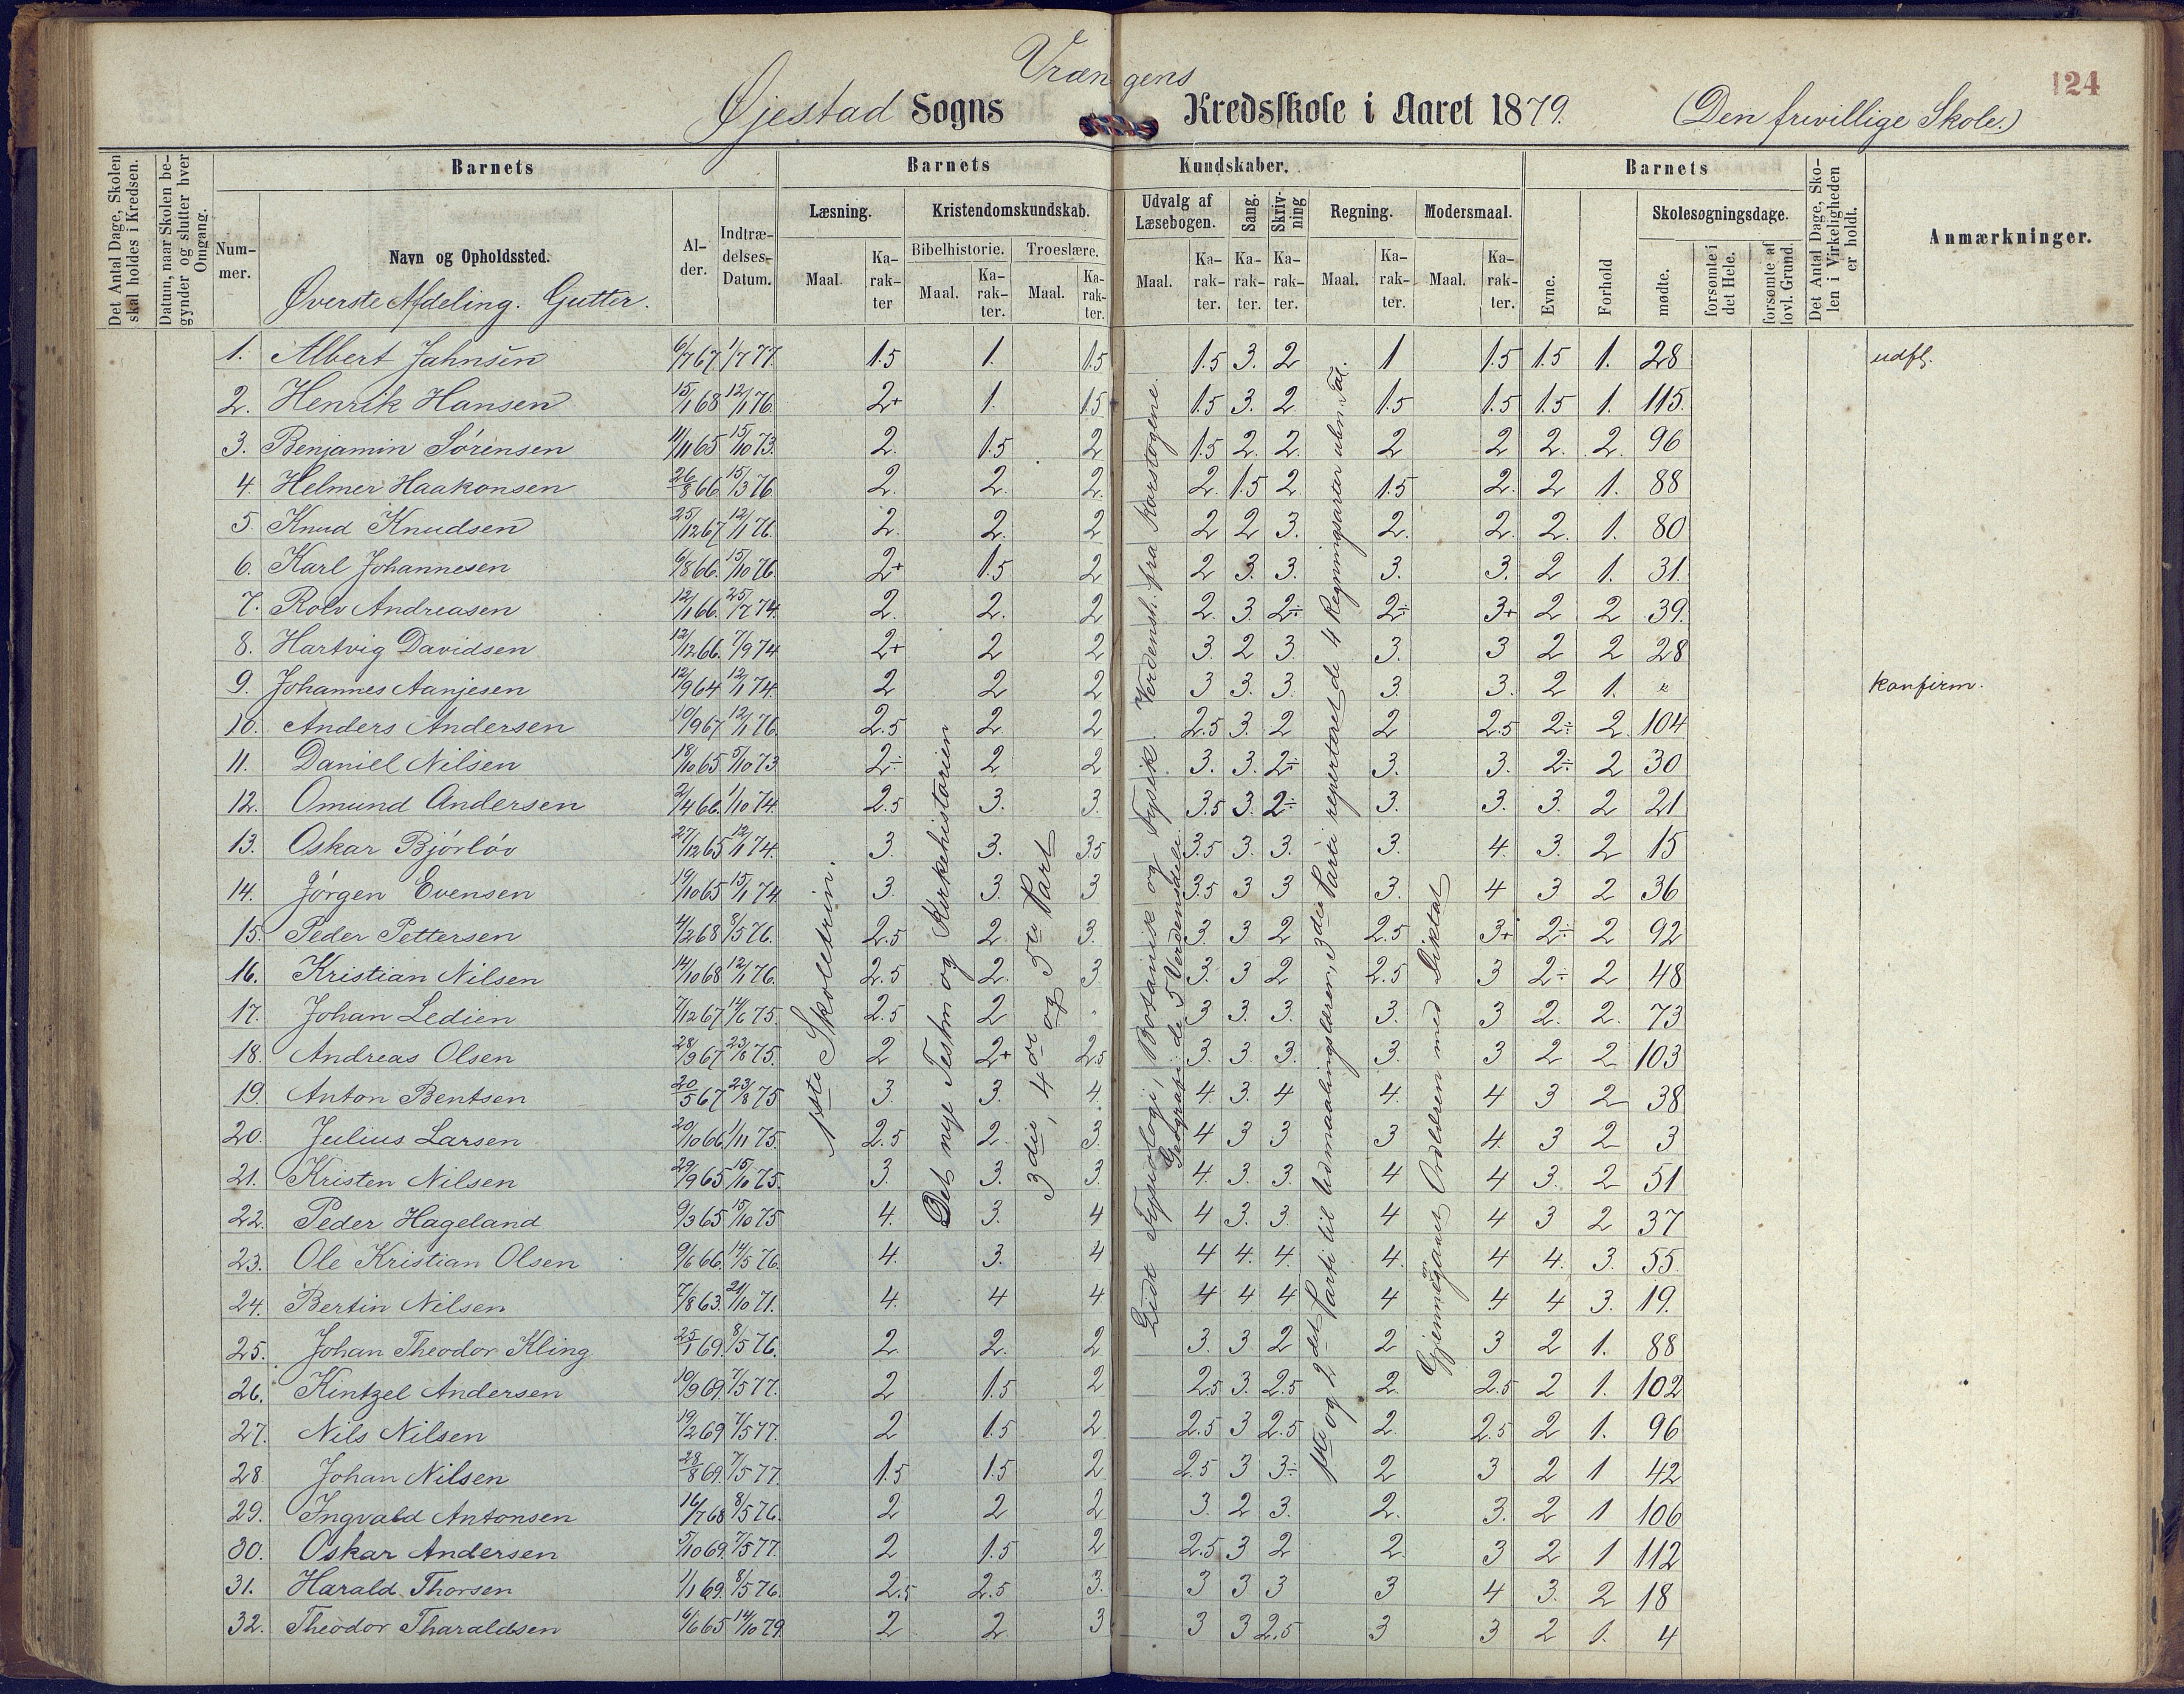 124
Vrængens
Øjestad Sogns Kredsskole i Aaret 1879. (Den frivillige Skole.)
Det Antal Dage, Skolen skal holdes i Kredsen.
Datum, naar Skolen begynder og slutter hver Omgang.
Barnets
Barnets Kundskaber.
Barnets
Det Antal Dage, Skolen i Virkeligheden er holdt.
Anmærkninger.
Nummer.
Navn og Opholdssted.
Alder.
Indtrædelses-Datum.
Læsning. Kristendomskundskab. Udvalg af Læsebogen. Sang. Skrivning Regning. Modersmaal. Evne. Forhold Skolesøgningsdage.
Bibelhistorie. Troeslære.
Maal. Karakter Maal. Karakter. Maal. Karakter. Maal. Karakter. Karakter. Karakter. Maal. Karakter. Maal. Karakter. mødte. forsømte i det Hele. forsømte af lovl. Grund.
Øverste Afdeling. Gutter.
1. Albert Jahnsen 6/7 67 1/7 77. 1.5 1. 1.5 1.5 3. 2 1 1.5 1.5 1. 28 udfl.
2. Henrik Hansen 15/1 68 12/1 76. 2+ 1. 1.5 1.5 3. 2 1.5 1.5 1.5 1. 115.
3. Benjamin Sørensen 11/11 65 15/10 73. 2. 1.5 2 1.5 2. 2. 2 2 2. 2. 96
4. Helmer Haakonsen 26/8 66 15/3 76 2. 2. 2. 2. 1.5 2. 1.5 2. 2 1. 88
5. Knud Knudsen 25/12 67 12/1 76. 2. 2. 2 2 2 3. 2. 2. 2. 1. 80
6. Karl Johannesen 6/8 66. 15/10 76. 2+ 1.5 2 2 3. 3. 3. 3. 2 1. 31.
7. Rolv Andreasen 12/1 66. 25/7 74. 2. 2. 2 2. 3. 2÷ 2÷ 3+ 2 2 39.
8. Hartvig Davidsen 12/12 66. 7/9 74 2+ 2 2 3. 2 3. 3. 3 2 2 28
9. Johannes Aanjesen 12/9 64 12/1 74. 2 2 2 3 3. 3. 3. 3. 2 1. " konfirm.
10. Anders Andersen 10/9 67 12/1 76. 2.5 2 2 2.5 3. 2 2 2.5 2÷ 2. 104
11. Daniel Nilsen 18/10 65 5/10 73 2÷ 2 2 3. 3. 2÷ 3. 3. 2÷ 2 30
12. Omund Andersen 2/4 66. 1/10 74. 2.5 3. 3. 3.5 3. 2÷ 3. 3. 3. 2 21
13. Oskar Bjørløv 27/12 65 12/1 74. 3. 3. 3.5 3.5 3. 3. 3. 4. 3. 2 15
14. Jørgen Evensen 19/10 65 15/1 74 3. 3. 3 3.5 3 3 3. 4 3 2 36
15. Peder Pettersen 4/2 68 8/5 76. 2.5 2. 3. 3. 3 2 2.5 3+ 2÷ 2 92
16. Kristian Nilsen 14/10 68 12/1 76. 2.5 2. 3 3. 3 2 2.5 3 2÷ 2 48
17. Johan Ledien 7/12 67 14/6 75. 2.5 2 " 3 3. 3. 3. 3 2. 2. 73
18. Andreas Olsen 28/9 67 23/8 75. 2 2+ 2.5 3. 3. 3. 3. 3 2 2 103
19. Anton Bentsen 20/5 67 23/8 75 3. 3. 4. 4. 3. 4 4. 4 3 2 38
20. Julius Larsen 20/10 66 1/11 75. 2.5 2. 3. 4 3 3 3 4. 3 2 3
21. Kristen Nilsen 29/9 65 15/10 75. 3. 3. 3. 4. 3. 3. 4 4 3. 2 51
22. Peder Hageland 9/3 65 15/10 75 4. 3. 4 4 3. 3. 4 4 3 2 37
23. Ole Kristian Olsen 9/6 66. 14/5 76. 4. 3. 4 4 4. 4. 4. 4 4. 3. 55.
24. Bertin Nilsen 7/8 63. 21/10 71. 4. 4 4 4 4 4 4 4 4 3. 19.
25. Johan Theodor Kling 25/1 69. 8/5 76. 2. 2. 2 3. 3 2 2 3 2 1. 88
26. Kintzel Andersen 10/9 69. 7/5 77. 2 1.5 2 2.5 3. 2.5 2. 2.5 2 1. 102
27. Nils Nilsen 19/2 69 7/5 77. 2 1.5 2 2.5 3 2.5 2. 2.5 2 1. 96
28. Johan Nilsen 28/8 69. 7/5 77. 1.5 1.5 2 2.5 3 3÷ 2 3 2 1 42
29. Ingvald Antonsen 16/7 68 8/5 76. 2 2 2 3. 2 3. 2. 3. 2 1 106
30. Oskar Andersen 5/10 69. 7/5 77. 2 1.5 2 2.5 3 2 2. 3 2 1 112
31. Harald Thorsen 1/1 69. 8/5 76. 2.5 2.5 3. 3 3 3 3 4 3. 2 18
32. Theodor Tharaldsen 6/6 65 14/10 79. 2 2 3 3 3 2.5 3 3 2 1. 4
1ste Skoletrin.
Det nye Testm og Kirkehistorien
3die, 4de og 5te Part
Lidt Fysiologi, Botanik og Fysik. Verdensh. fra Korstogene.
Geografi: de 5 Verdensdele.
1ste og 2det Parti til Udmaalingslæren, 3die Parti repeteret de 4 Regningsarter uben. Tal.
Gjennemgaaet Ordlæren med Diktat